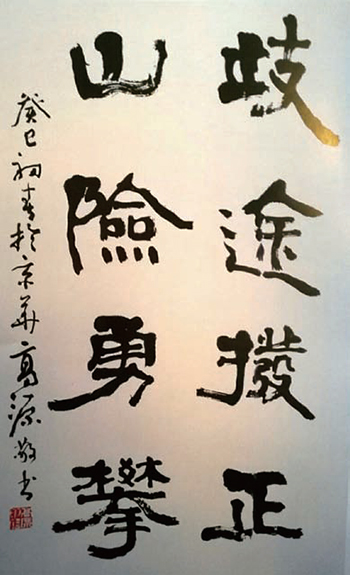 歧途撥正
山險勇攀
癸巳初春於京華高源敬书